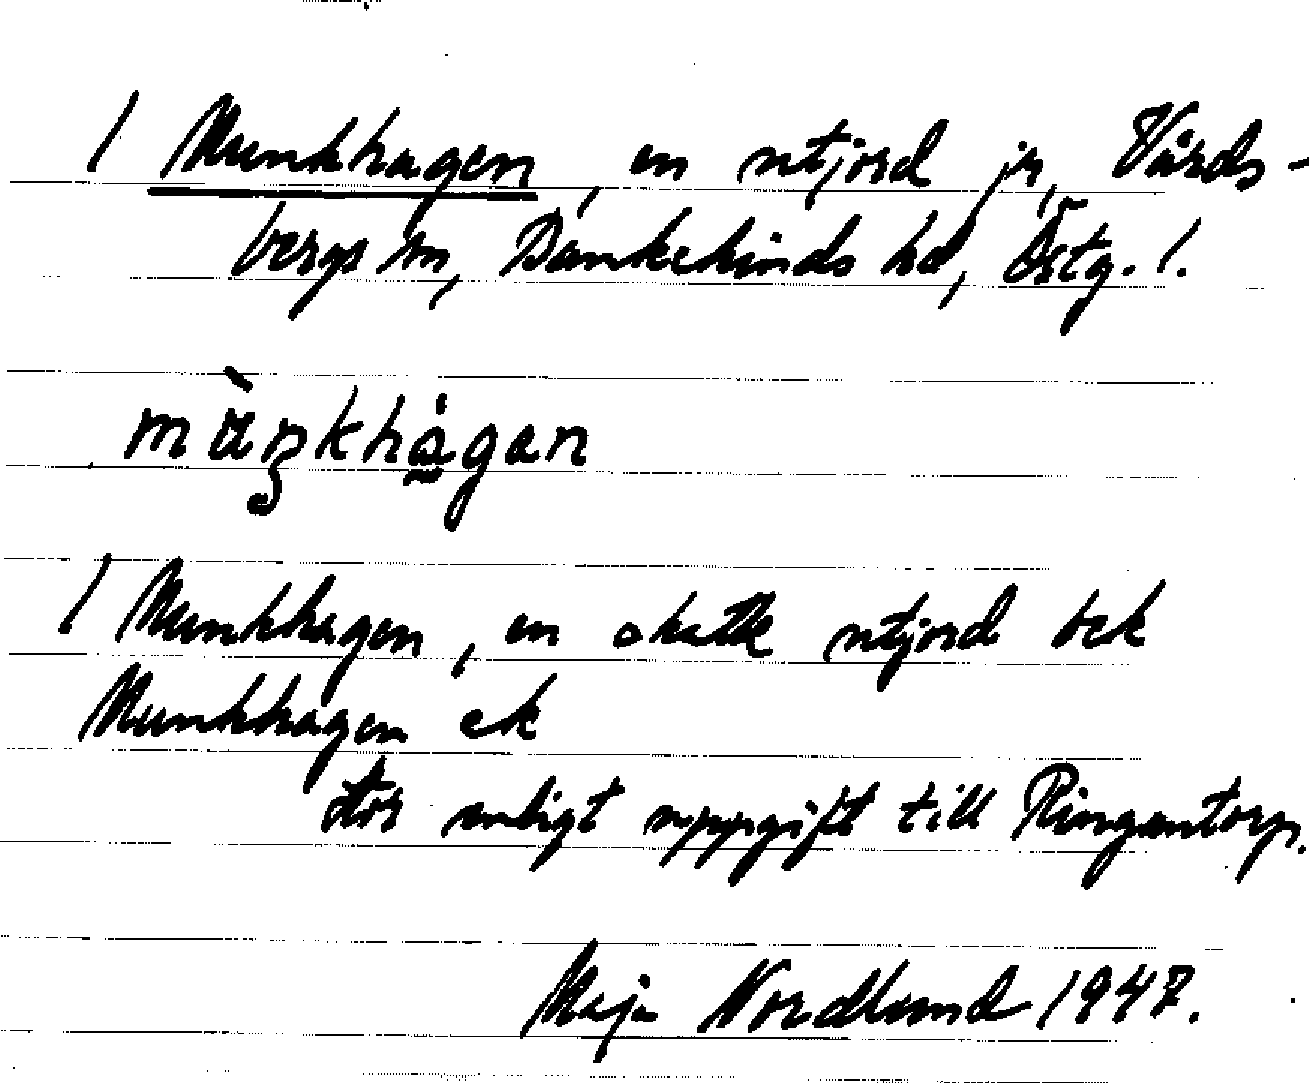 / Munkhagen, en utjord j, Vårds-
bergs sn, Bankekinds hd, Östg. l.
mùŋkhágan
/ Munkhagen, en skatte utjord bek
Munkhagen ek
Hör enligt uppgift till Ringantorp.
Maja Nordlund 1947.